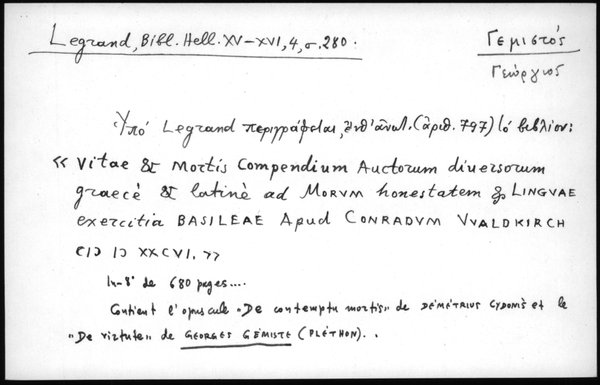 Legrand, Bibl. Hell. XV-XVI, 4, σ. 280.
Γεμιστός
Γεώργιος
Ὑπό Legrand περιγράφεται, (ἀριθ. 797) τό βιβλίον:
« Vitae & Mortis Compendium Auctorum diversorum
graecè & latinè ad MORVM honestatem & LINGVAE
exercitia BASILEAE Apud CONRADVM VVALDKIRCH
CIↃ IↃ XXCVI. »
In-8° de 680 pages....
Contient l'opuscule "De contemptu mortis" de DÉMÉTRIUS CYDONÈS et le
"De virtute" de GEORGES GÉMISTE (PLÉTHON)..